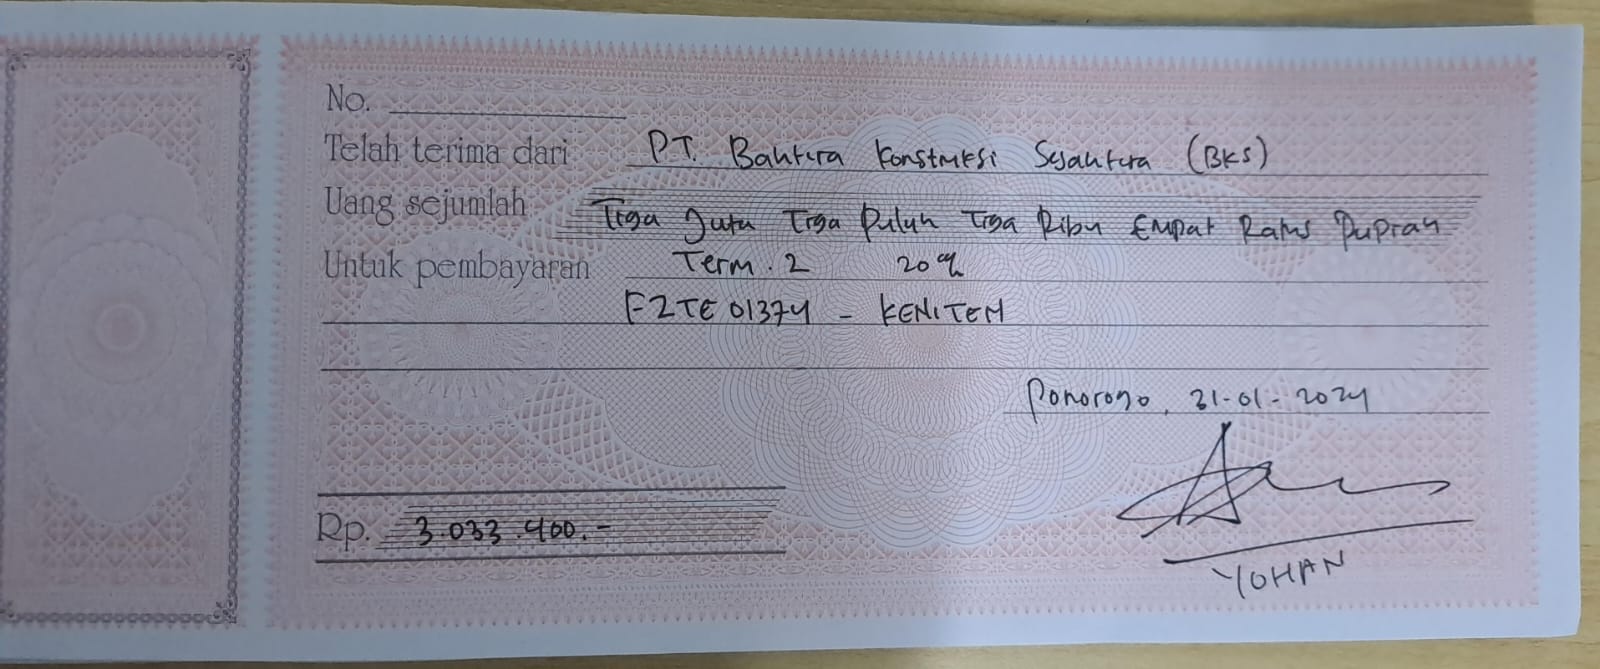 No.
Telah terima dari PT. Bahtera Konstruksi Sejahtera (BKS)
Uang sejumlah Tiga Juta Tiga Puluh Tiga Ribu Empat Ratus Rupiah
Untuk pembayaran Term. 2 20%
FZTE 01374 - KENITEN
Ponorogo, 31-01-2024
Rp. 3.033.400.-
YOHAN